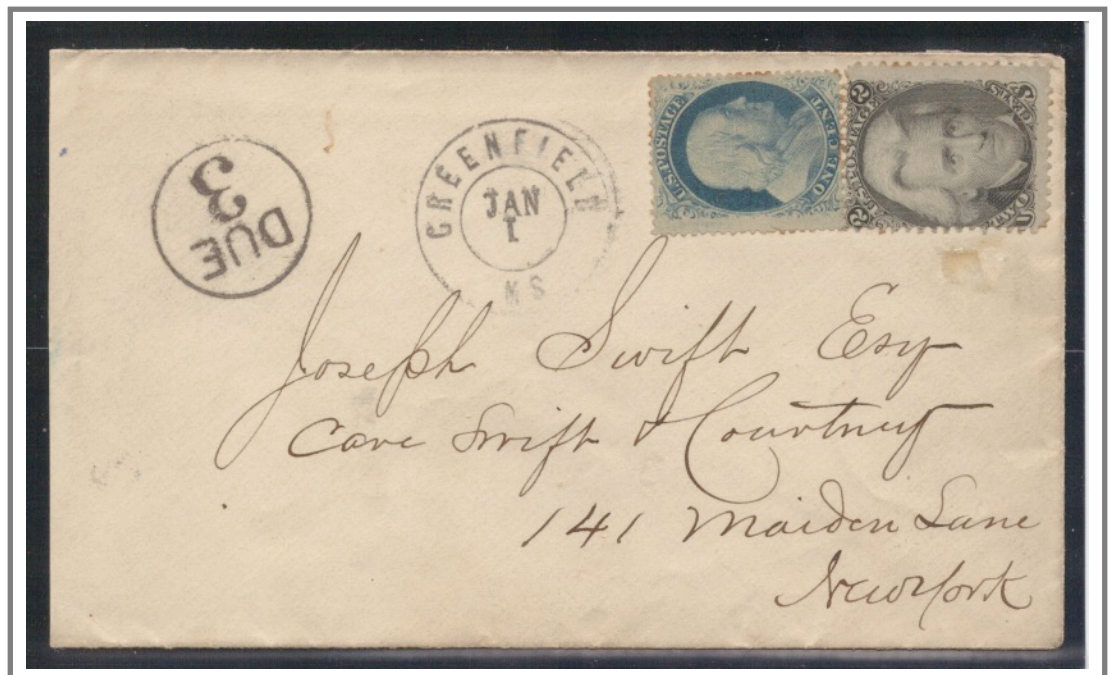 DUE 3
GREENFIELD
JAN
1
MS
U.S. POSTAGE
ONE CENT
2 2
U.S. POSTAGE
TWO CENTS
Joseph Swift Esq
Care Swift & Courtney
141 Maiden Lane
New York